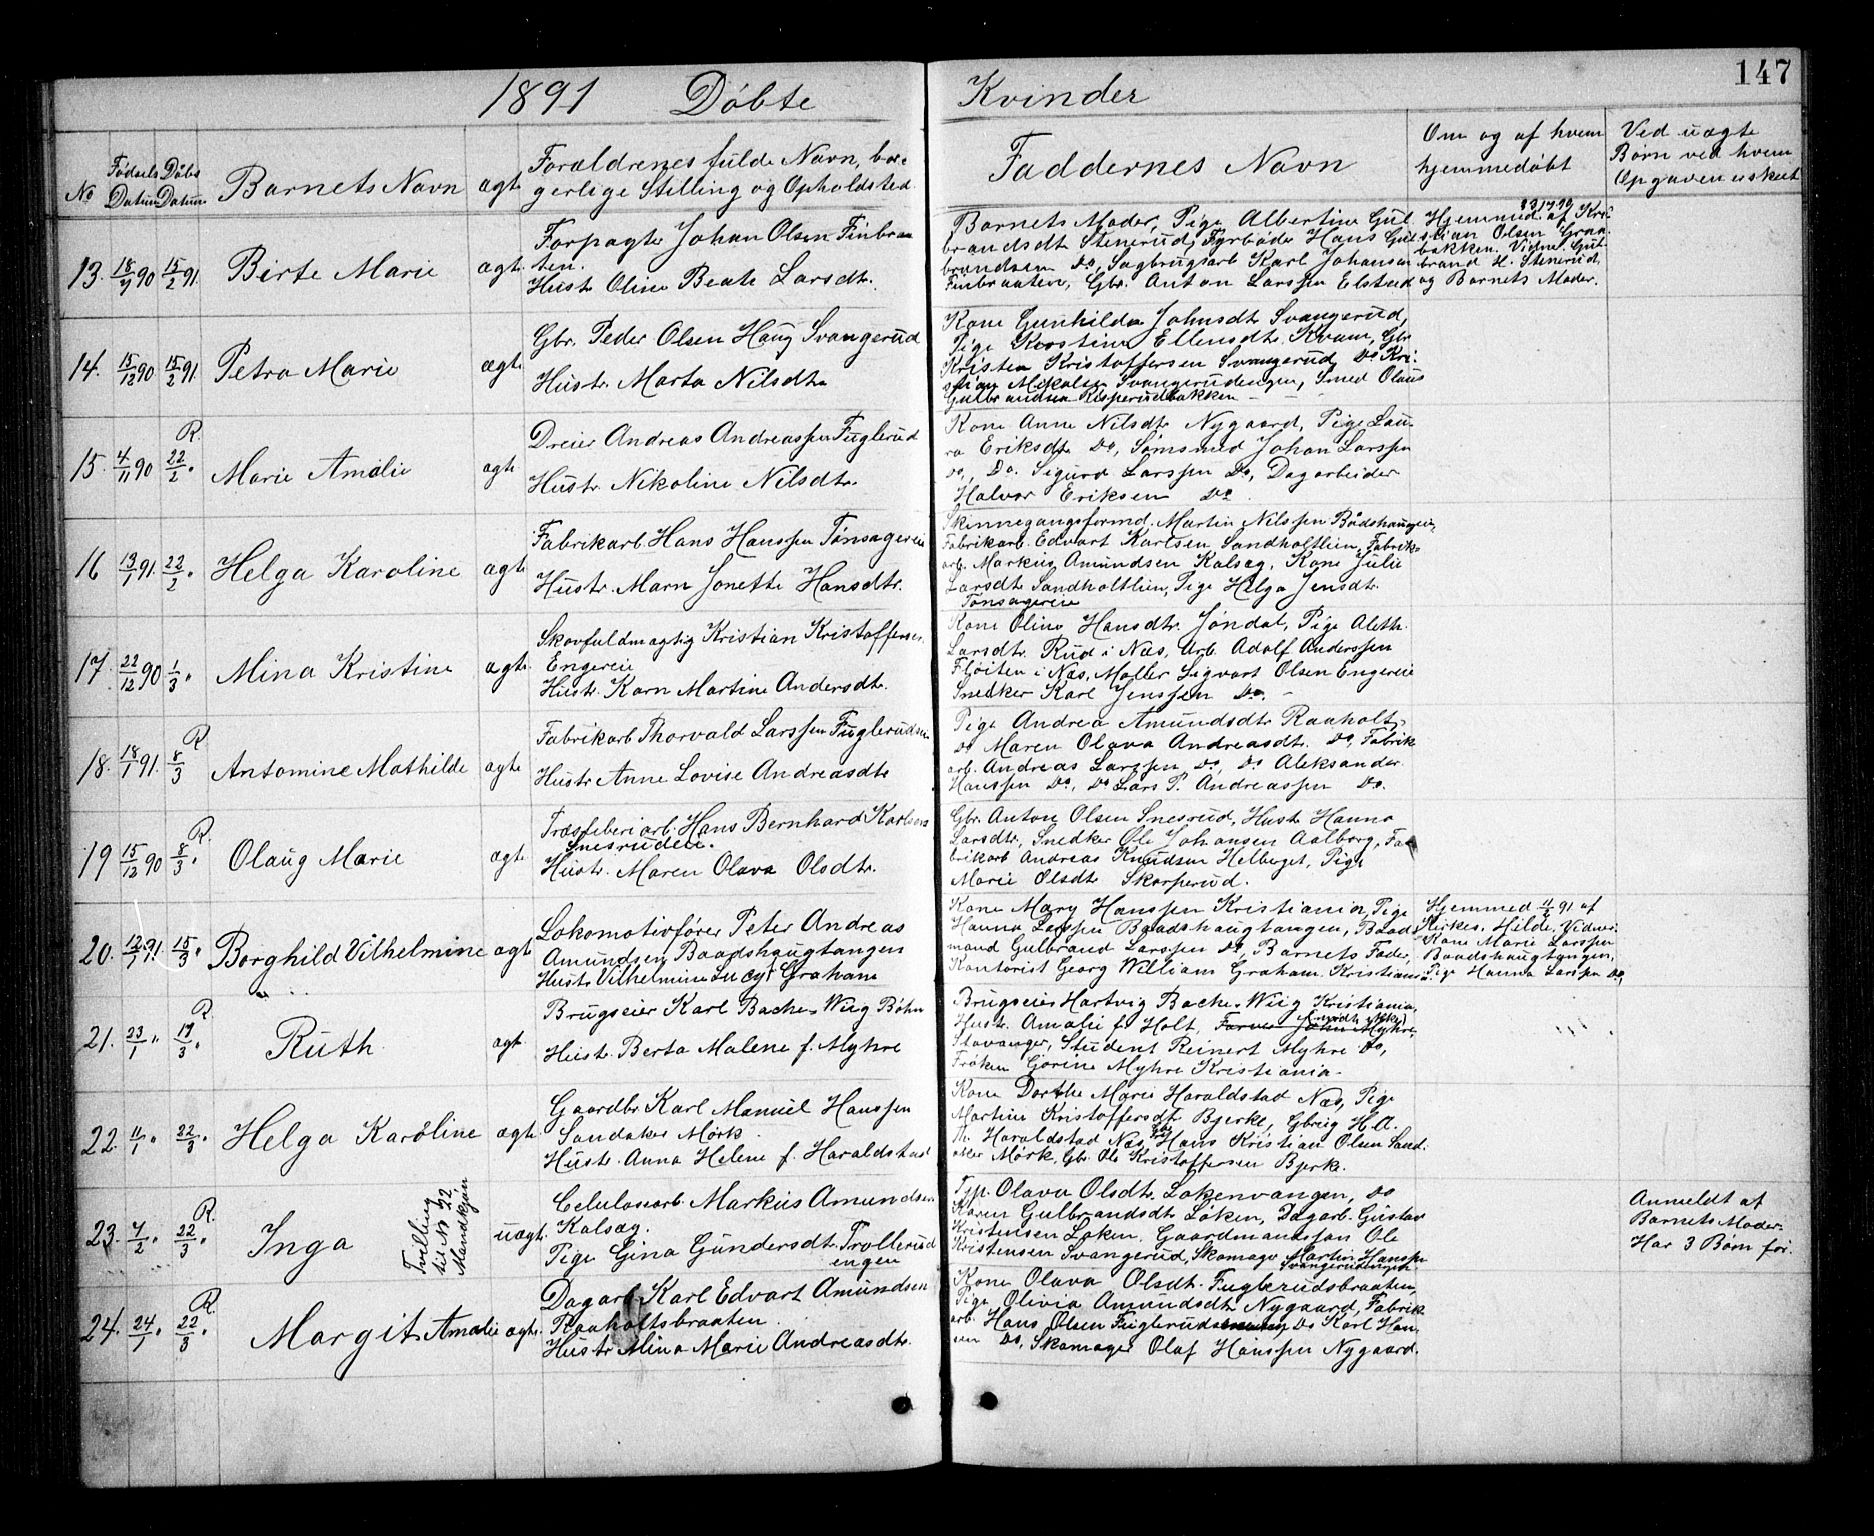 147
1891 Döbte Kvinder
No
Fødsels Datum
Døbs Datum
Barnets Navn
ægte
Forældrenes fulde Navn, bor-
gerlige Stilling og Opholdsted
Faddernes Navn
Om og af hvem
hjemmedøbt
Ved uægte
Børn ved hvem
Opgaven er skeet
13. 18/7 90 15/2 91. Birte Marie ægte.
Forpagter Johan Olsen Finbraa-
ten.
Hustr Oline Beate Larsdtr.
Barnets Moder, Pige Albertine Gul
brandsdtr Stenerud, Fyrbøder Hans Gul
brandsen Do, Sagbrugsarb Karl Johansen
Finbraaten, Gbr. Anton Larssen Elstad
Hjemmed. af Kri-
stian Olsen Graa-
bakken. Vidne: Gul-
brand H. Stenerud,
og Barnets Moder.
14. 15/12 90 15/2 91. Petra Marie ægte
Gbr. Peder Olsen Haug Svangerud
Hustr. Marta Nilsdtr
Kone Gunhilda Johnsdtr Svangerud,
Pige Kirstine Ellensdtr. Kvam, Gbr
Kristen Kristoffersen Svangerud, Do Kri-
stian Mikalsen Svangerudengen, Smed Olaus
Gulbrandsen Risperudbakken
15. 4/11 90 R. 22/2 " Marie Amalie ægte
Dreier Andreas Andreassen Fuglerud
Hustr. Nikoline Nilsdtr.
Kone Anne Nilsdtr Nygaard, Pige Lau-
ra Eriksdtr Do, Sømsmed Johan Larssen
Do, Do. Sigurd Larssen Do, Dagarbeider
Halvor Eriksen Do.
16 13/1 91. 22/2 " Helga Karoline ægte
Fabrikarb. Hans Hanssen Tønsagereie
Hustr. Marn Jonette Hansdtr.
Skinnegangsformd. Martin Nilssen Bådshaugeie,
Fabrikarb. Edvart Karlsen Sandholtlien, Fabrik-
arb. Markus Amundsen Kalsæg, Kone Julie
Larsdtr Sandholtlien, Pige Helga Jensdtr.
Tønsagereie
17. 22/12 90 1/3 " Mina Kristine ægte.
Skovfuldmægtig Kristian Kristoffersen
Engereie
Hustr. Karn Martine Andersdtr.
Kone Oline Hansdtr. Jøndal, Pige Aleth.
Larsdtr. Rud i Næs, Arb. Adolf Anderssen
Fløiten i Næs, Møller Sigvart Olsen Engereie
Snedker Karl Jenssen Do. -
18. 18/1 91. R 8/3 Antomine Mathilde ægte
Fabrikarb Thorvald Larssen Fuglerudsen
Hustr Anne Lovise Andreasdtr
Pige Andrea Amundsdtr Raaholt,
Do Maren Olava Andreasdtr. Do, Fabrik
arb. Andreas Larssen Do, Do Aleksander
Hanssen Do, Do Lars P. Andreassen Do.
19 15/12 90 R. 8/3 " Olaug Marie ægte
Træsliberiarb. Hans Bernhard Karlsen
Snesrudeie.
Hustr. Maren Olava Olsdtr.
Gbr. Anton Olsen Snesrud, Hustr Hanna
Larsdtr, Snedker Ole Johansen Aalborg, Fa-
brikarb Andreas Knudsen Helberget, Pige
Marie Olsdtr Skarperud.
20. 12/1 91. 15/3 " Borghild Vilhelmine ægte
Lokomotivfører Peter Andreas
Amundsen Baadshaugtangen
Hustr Vilhelmine Lucy Graham
Kone Mary Hanssen Kristiania, Pige
Hanna Larssen Baadshaugtangen, Baads-
mand Gulbrand Larssen Do, Barnets Fader,
Kontorist Georg William Graham. Kristiania.
Hjemmed. 91 af
Kirkes. Hilde, Vidner
Kone Marie Larssen
Baadshaugtangen,
Pige Hanna Larssen Do,
21. 23/1 " R. 19/3 " Ruth. ægt
Brugseier Karl Bache-Wiig Bøhn
Hustr. Berta Malene f. Myhre
Brugseier Hartvig Bache-Wiig Kristiania,
Hustr. Amalie f Holt, John Myhre,
Stavanger, Student Reinert Myhre Do,
Frøken Gorine Myhre Kristiania.
22. 11/1 " 22/3 " Helga Karoline ægte
Gaardbr. Karl Manuel Hanssen
Sandaker Mørk.
Hustr. Anna Helene f. Haraldstad
Kone Dorthe Marie Haraldstad Næs, Pige
Martine Kristoffersdtr Bjerke, Gbreig H. A.
Haraldstad Næs, Gbr Hans Kristian Olsen Sand-
aker Mørk, Gbr. Ole Kristoffersen Bjerke.
23. 7/2 " R. 22/3 " Inga
Tvilling
til No 22,
Mandkjøn
uægte.
Celulosearb. Markus Amundsen
Kalsæg.
Pige Gina Gundersdtr. Trollerud
engen
Olava Olsdtr. Løkenvangen, Do
Karen Gulbrandsdtr Løken, Dagarb. Gustav
Kristensen Løken. Gaardmandssøn Ole
Kristensen Svangerud, Skomager Martin Hanssen
Svangerudengen.
Anmeldt af
Barnets Moder.
Har 3 Børn før.
24. 24/1 " R. 22/3 " Margit Amalie ægte.
Dagarb. Karl Edvart Amundsen
Raaholtsbraaten.
Hustr Mina Marie Andreasdtr.
Kone Olava Olsdtr. Fuglerudsbraaten,
Pige Olivia Amundsdtr Nygaard, Fabrik
arb. Hans Olsen Fuglerud Do Karl Han-
sen Do, Skomager Olaf Hanssen Nygaard.